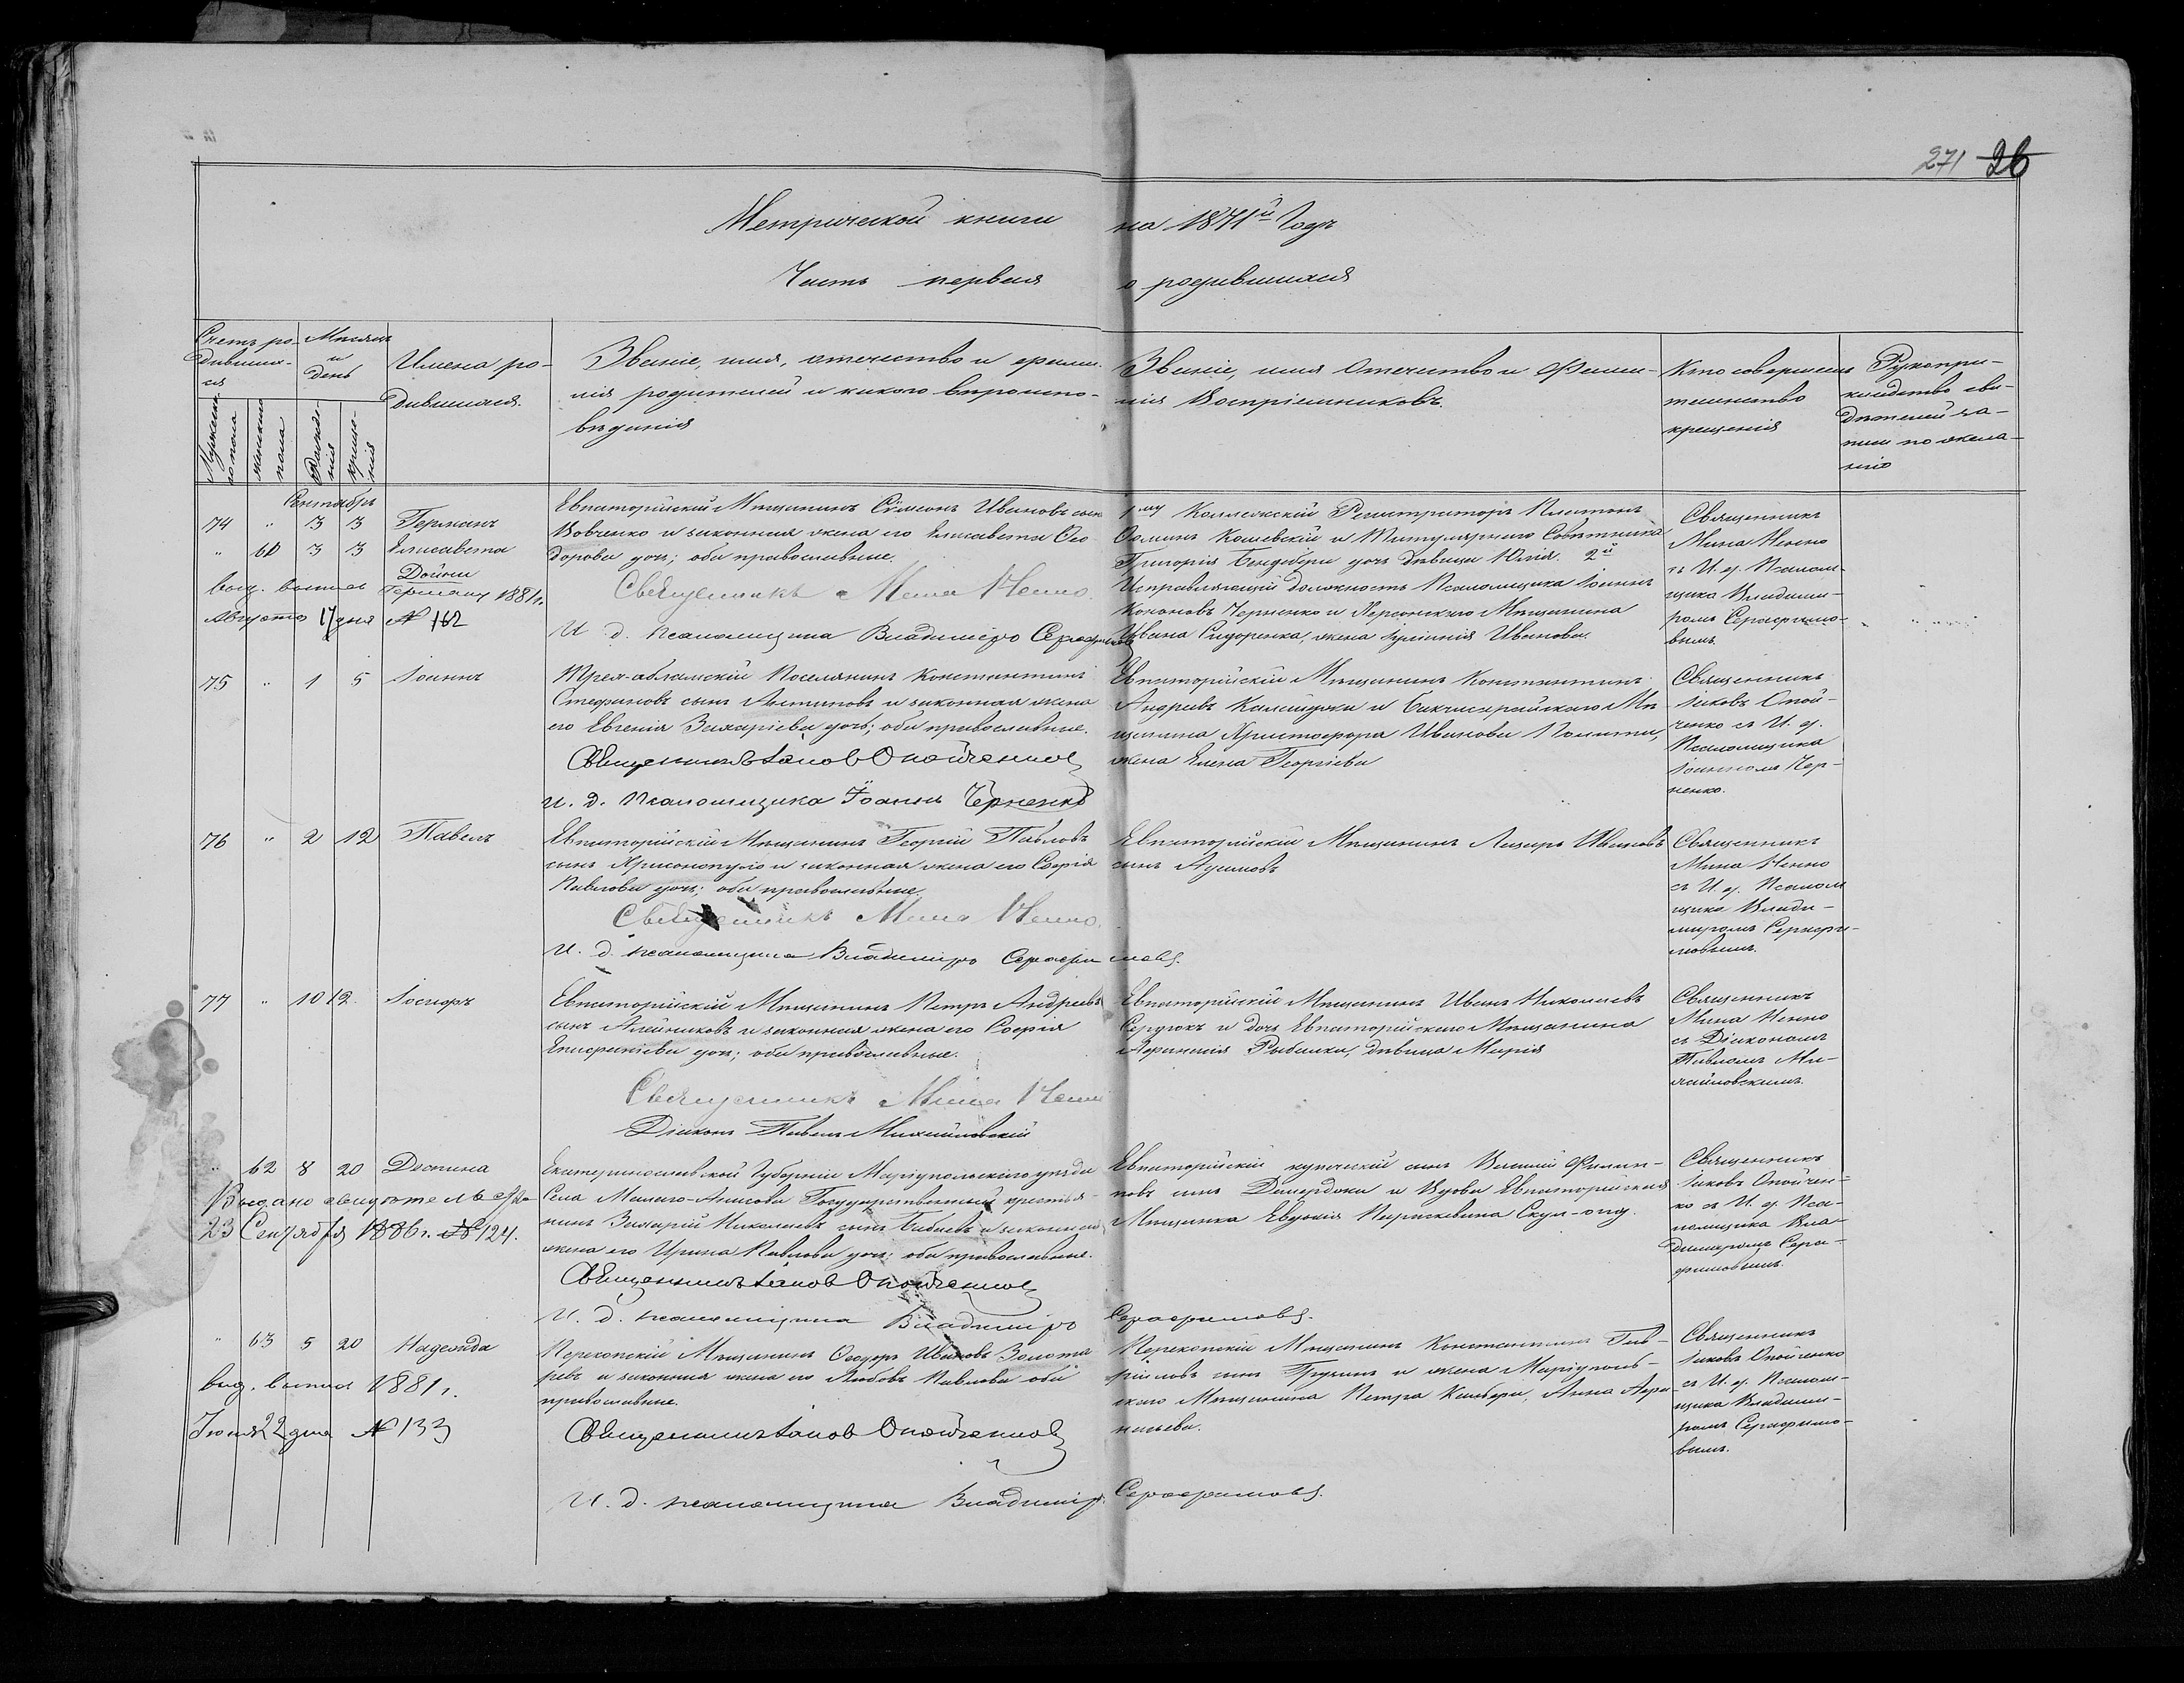 271 26
Метрической книги на 1871й Годъ
Часть первая о родившихся
Счетъ ро-
дивших-
ся
Мужеска-
го пола
женскаго
пола
Месяцъ
и
день
Рожде-
нія
креще-
нія
Имена ро-
дившихся.
Званіе, имя, отечество и фами-
лія родителей и какого вѣроиспо-
вѣданія
Званіе, имя Отечество и Фами-
лія Воспріемниковъ.
Кто совершалъ
таинство
крещенія
Рукопри-
кладство сви-
дѣтелей за-
писи по жела-
нію
Сентябрь
74 " 3 3 Германъ
" 61 3 3 Елисавета
Двойни
выд. выписъ Герману 1881 г.
Августа 17 дня № 162
Евпаторійскій Мѣщанинъ Сѵмеонъ Ивановъ сынъ
Вовченко и законная жена его Елисавета Ѳео
дорова дочь; оба православные.
Священникъ Мина Ненно.
И. д. псаломщика Владиміръ Серафимовъ
1му Коллежскій Регистраторъ Платонъ
Ѳоминъ Кошевскій и Титулярнаго Совѣтника
Григорія Бендебери дочь дѣвица Юлія. 2й
Исправляющій должность Псаломщика Іоаннъ
Кононовъ Черненко и Херсонскаго Мѣщанина
Ивана Сидоренка, жена Іуліанія Иванова.
Священникъ
Мина Ненно
съ И. д. Псалом-
щика Владими-
ромъ Серафимо-
вымъ.
75 " 1 5 Іоаннъ
Трех-абламскій Поселянинъ Константинъ
Стефановъ сынъ Антиповъ и законная жена
его Евгенія Захаріева дочь; оба православные.
Священникъ Іаковъ Опойченко
И. д. Псаломщика Іоаннъ Черненко
Евпаторійскій Мѣщанинъ Константинъ
Андреевъ и Бакчисарайскаго Мѣ
щанина Христофора Иванова
жена Елена Георгіева
Священникъ
Іаковъ Опой-
ченко съ И. д.
Псаломщика
Іоанномъ Чер-
ненко.
76 " 2 12 Павелъ
Евпаторійскій Мѣщанинъ Георгій Павловъ
сынъ Хрисопопуло и законная жена его Софія
Павлова дочь; оба православные.
Священникъ Мина Ненно.
И. д. псаломщика Владиміръ Серафимовъ.
Евпаторійскій Мѣщанинъ Лазарь Ивановъ
сынъ
Священникъ
Мина Ненно
съ И. д. Псалом
щика Влади-
миромъ Серафи-
мовымъ.
77 " 10 12. Іосифъ
Евпаторійскій Мѣщанинъ Петръ Андреевъ
сынъ Алейниковъ и законная жена его Софія
Епифаніева дочь; оба православные.
Священникъ Мина Ненно
Діаконъ Павелъ Михайловскій
Евпаторійскій Мѣщанинъ Иванъ Николаевъ
Сердюкъ и дочь Евпаторійскаго Мѣщанина
Афанасія Рыбалки, дѣвица Марія
Священникъ
Мина Ненно
съ Діакономъ
Павломъ Ми-
хайловскимъ.
" 62 8 20 Деспина
Выдано свидѣтельство
23 Сентября 1886 г. № 124.
Екатеринославской Губерніи Маріупольскаго уѣзда
Села Малаго-Янисоля Государственный крестья-
нинъ Захарій Николаевъ сынъ и законная
жена его Ирина Павлова дочь; оба православные.
Священникъ Іаковъ Опойченко
И. д. псаломщика Владиміръ Серафимовъ.
Евпаторійскій купеческій сынъ Василій Филип-
повъ сынъ Демерджи и Вдова Евпаторійская
Мѣщанка Евдокія Параскевина
Священникъ
Іаковъ Опойчен-
ко съ И. д. Пса-
ломщика Вла-
димиромъ Сера-
фимовымъ.
" 63 5 20 Надежда
выд. выписъ 1881 г.
Іюня 22 дня № 133
Перекопскій Мѣщанинъ Ѳеодоръ Ивановъ Золота
ревъ и законная жена его Любовь Павлова оба
православные.
Священникъ Іаковъ Опойченко
И. д. псаломщика Владиміръ Серафимовъ.
Перекопскій Мѣщанинъ Константинъ Гав-
риловъ сынъ и жена Маріуполь-
скаго Мѣщанина Петра Анна Афа-
насьева.
Священникъ
Іаковъ Опойченко
съ И. д. Псалом-
щика Владими-
ромъ Серафимо-
вымъ.